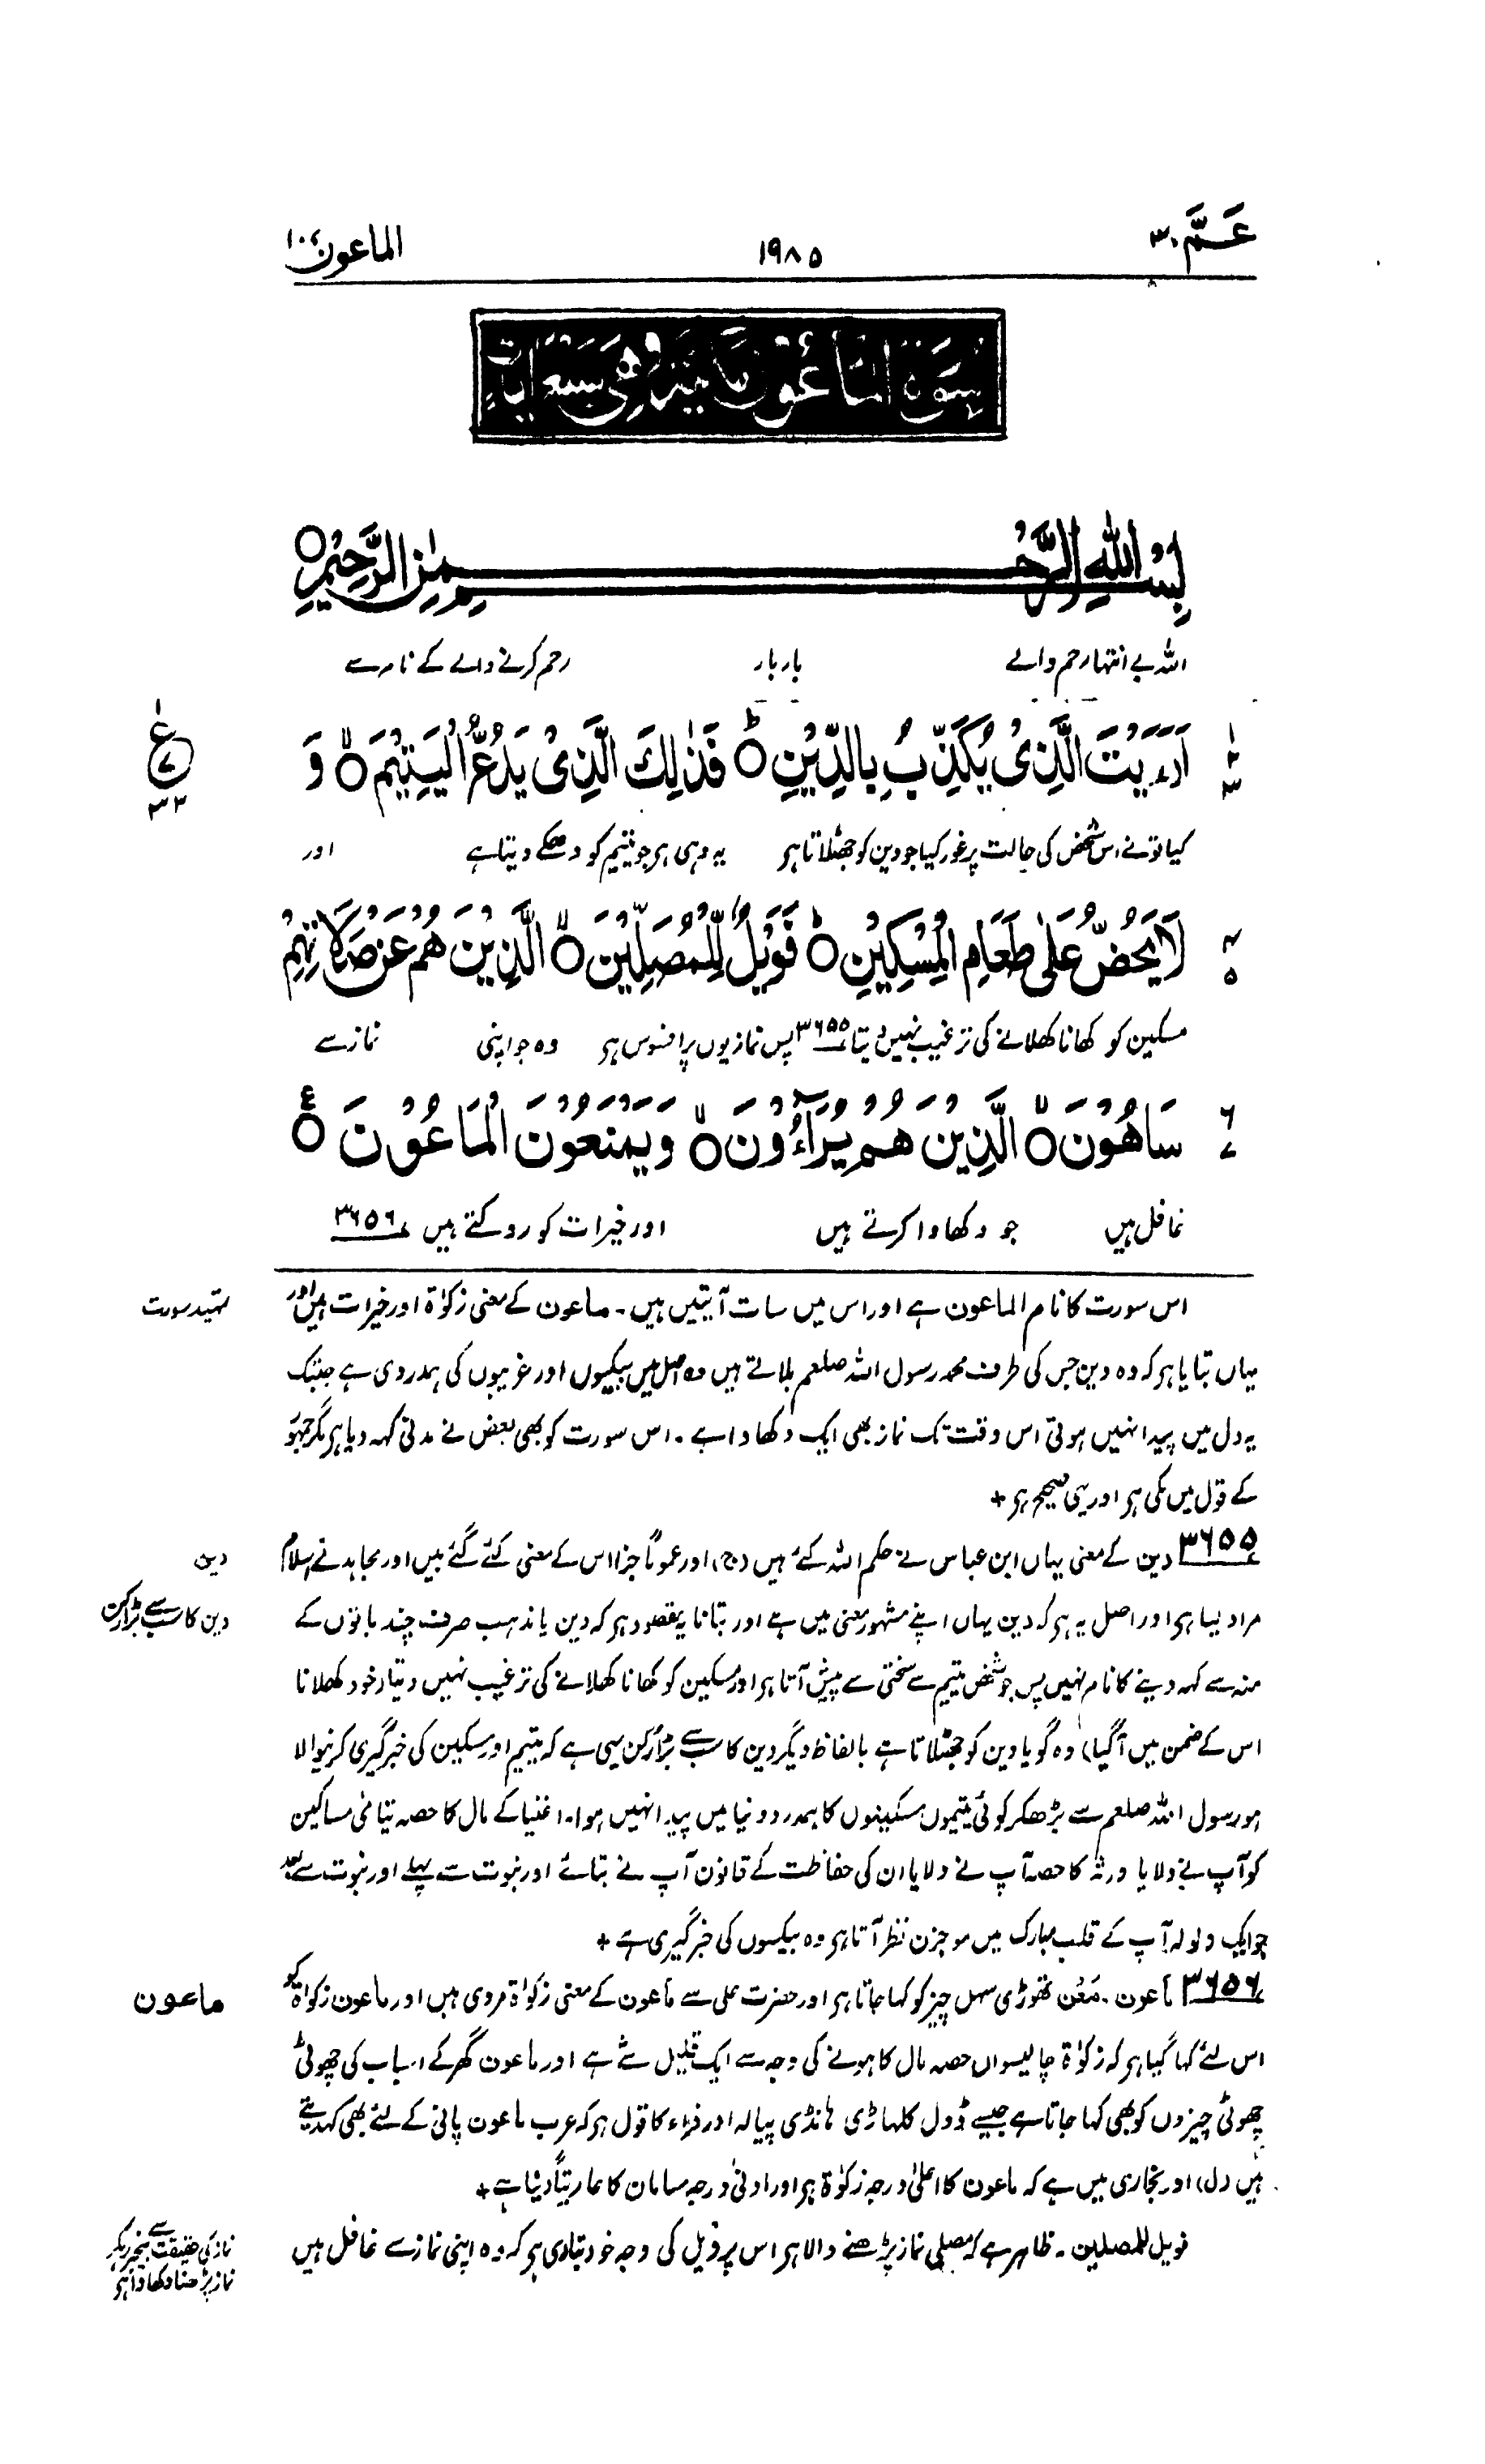 عَمَّ ۳۰
۱۹۸۵
الماعون ۱۰۷
سُوۡرَةُ الْمَاعُوۡنِ مَكِّيَّةٌ وَّهِيَ سَبْعُ اٰيَاتٍ
بِسْمِ اللّٰهِ الرَّحْمٰنِ الرَّحِيْمِ ○
اللہ بے انتہا رحم والے بار بار رحم کرنے والے کے نام سے
اَرَءَيْتَ الَّذِيْ يُكَذِّبُ بِالدِّيْنِ ○ فَذٰلِكَ الَّذِيْ يَدُعُّ الْيَتِيْمَ ○ وَ
کیا تو نے اس شخص کی حالت پر غور کیا جو دین کو جھٹلاتا ہر یہ وہی ہر جو یتیم کو دھکے دیتا ہے اور
لَا يَحُضُّ عَلٰى طَعَامِ الْمِسْكِيْنِ ○ فَوَيْلٌ لِّلْمُصَلِّيْنَ ○ الَّذِيْنَ هُمْ عَنْ صَلَاتِهِمْ
مسکین کو کھانا کھلانے کی ترغیب نہیں دیتا ۳۶۵۵ پس نمازیوں پر افسوس ہر وہ جو اپنی نماز سے
سَاهُوْنَ ○ الَّذِيْنَ هُمْ يُرَآءُوْنَ ○ وَيَمْنَعُوْنَ الْمَاعُوْنَ ○
غافل ہیں جو دکھاوا کرتے ہیں اور خیرات کو روکتے ہیں ۳۶۵۶
تمہید سورت
اس سورت کا نام الماعون ہے اور اس میں سات آیتیں ہیں۔ ماعون کے معنی زکوٰۃ اور خیرات ہیں اور
یہاں بتایا ہر کہ وہ دین جس کی طرف محمد رسول اللہ صلعم بلاتے ہیں وہ اصل میں بیکسوں اور غریبوں کی ہمدردی ہے جبتک
یہ دل میں پیدا نہیں ہوتی اس وقت تک نماز بھی ایک دکھاوا ہے۔ اس سورت کو بھی بعض نے مدنی کہہ دیا ہر مگر جمہور
کے قول میں مکی ہر اور یہی صحیح ہر +
۳۶۵۵ دین کے معنی یہاں ابن عباس نے حکم اللہ کئے ہیں (ج) اور عموماً جزا اس کے معنی کئے گئے ہیں اور مجاہد نے اسلام
دین
مراد لیا ہر اور اصل یہ ہر کہ دین یہاں اپنے مشہور معنی میں ہے اور بتانا یہ مقصود ہر کہ دین یا مذہب صرف چند باتوں کے
دین کا سب سے بڑا رکن
منہ سے کہہ دینے کا نام نہیں پس جو شخص یتیم سے سختی سے پیش آتا ہر اور مسکین کو کھانا کھلانے کی ترغیب نہیں دیتا (خود کھلانا
اس کے ضمن میں آ گیا) وہ گویا دین کو جھٹلاتا ہے بالفاظ دیگر دین کا سب سے بڑا رکن یہی ہے کہ یتیم اور مسکین کی خبر گیری کرنیوالا
ہو رسول اللہ صلعم سے بڑھکر کوئی یتیموں مسکینوں کا ہمدرد دنیا میں پیدا نہیں ہوا۔ اغنیا کے مال کا حصہ یتامیٰ مساکین
کو آپ نے دلایا ورثہ کا حصہ آپ نے دلایا ان کی حفاظت کے قانون آپ نے بتائے اور نبوت سے پہلے اور نبوت سے بعد
جو ایک ولولہ آپ کے قلب مبارک میں موجزن نظر آتا ہر وہ بیکسوں کی خبر گیری ہے +
۳۶۵۶ ماعون۔ مَعْن تھوڑی سہل چیز کو کہا جاتا ہر اور حضرت علی سے ماعون کے معنی زکوٰۃ مروی ہیں اور ماعون زکوٰۃ کو
ماعون
اس لئے کہا گیا ہر کہ زکوٰۃ چالیسواں حصہ مال کا ہونے کی وجہ سے ایک قلیل شے ہے اور ماعون گھر کے اسباب کی چھوٹی
چھوٹی چیزوں کو بھی کہا جاتا ہے جیسے ڈول کلہاڑی ہانڈی پیالہ اور فراء کا قول ہر کہ عرب ماعون پانی کے لئے بھی کہدیتے
ہیں (ل) اور بخاری میں ہے کہ ماعون کا اعلیٰ درجہ زکوٰۃ ہر اور ادنیٰ درجہ سامان کا عاریتاً دینا ہے +
فویل للمصلین۔ ظاہر ہے کہ مصلی نماز پڑھنے والا ہر اس پر ویل کی وجہ خود بتا دی ہر کہ وہ اپنی نماز سے غافل ہیں
نماز کی حقیقت سے بیخبر رہکر
نماز پڑھنا دکھاوا ہر